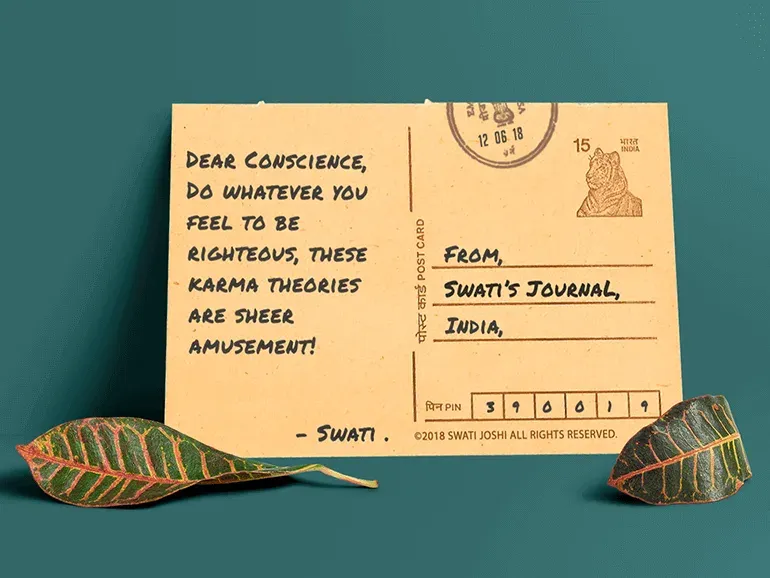 DEAR CONSCIENCE,
DO WHATEVER YOU
FEEL TO BE
RIGHTEOUS, THESE
KARMA THEORIES
ARE SHEER
AMUSEMENT!
- SWATI.
12 06 18
15 भारत
INDIA
पोस्ट कार्ड POST CARD
FROM,
SWATI'S JOURNAL,
INDIA,
पिन PIN 3 9 0 0 1 9
©2018 SWATI JOSHI ALL RIGHTS RESERVED.